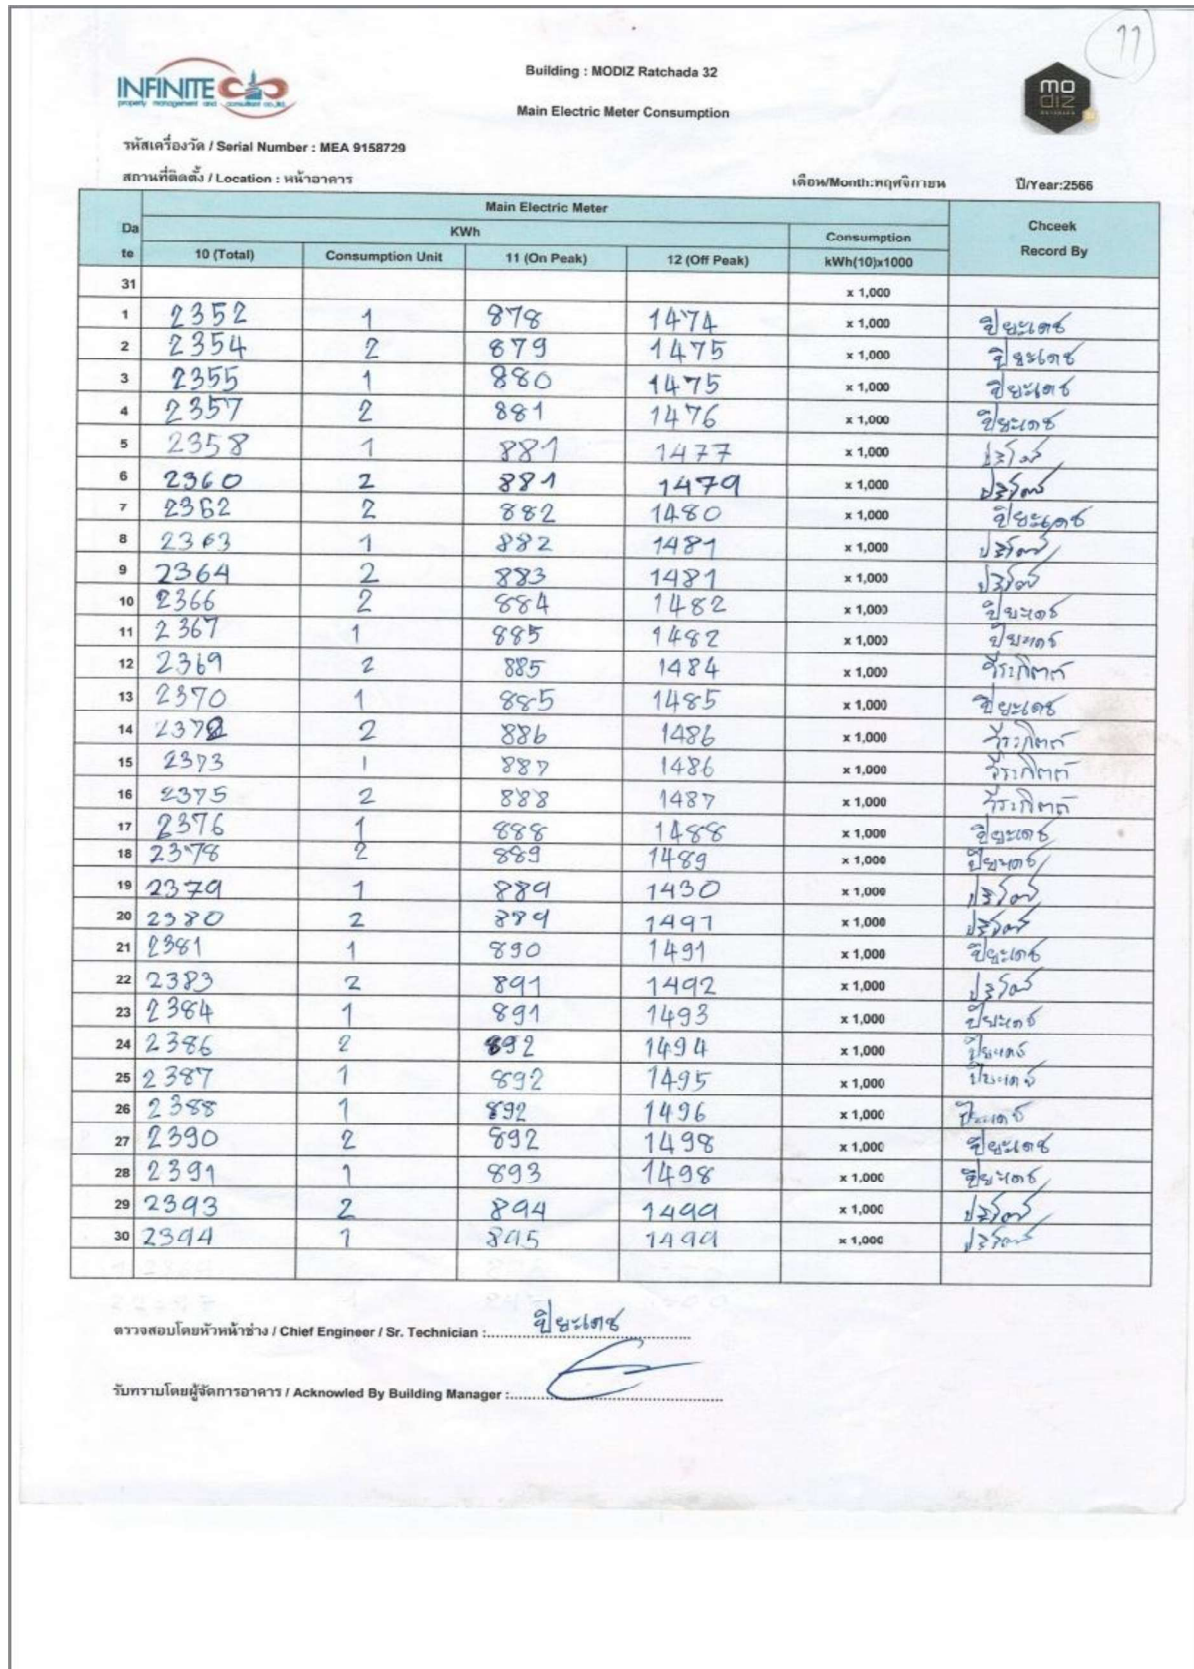 11
INFINITE
property management and consultant co.,ltd.
Building : MODIZ Ratchada 32
Main Electric Meter Consumption
mo
diz
รหัสเครื่องวัด / Serial Number : MEA 9158729
สถานที่ติดตั้ง / Location : หน้าอาคาร เดือน/Month:พฤศจิกายน ปี/Year:2566
Main Electric Meter
Da te KWh Consumption Chceek Record By
10 (Total) Consumption Unit 11 (On Peak) 12 (Off Peak) kWh(10)x1000
31 x 1,000
1 2352 1 878 1474 x 1,000 ปิยะเดช
2 2354 2 879 1475 x 1,000 ปิยะเดช
3 2355 1 880 1475 x 1,000 ปิยะเดช
4 2357 2 881 1476 x 1,000 ปิยะเดช
5 2358 1 881 1477 x 1,000
6 2360 2 881 1479 x 1,000
7 2362 2 882 1480 x 1,000 ปิยะเดช
8 2363 1 882 1481 x 1,000
9 2364 2 883 1481 x 1,000
10 2366 2 884 1482 x 1,000 ปิยะเดช
11 2367 1 885 1482 x 1,000 ปิยะเดช
12 2369 2 885 1484 x 1,000
13 2370 1 885 1485 x 1,000 ปิยะเดช
14 2372 2 886 1486 x 1,000
15 2373 1 887 1486 x 1,000
16 2375 2 888 1487 x 1,000
17 2376 1 888 1488 x 1,000 ปิยะเดช
18 2378 2 889 1489 x 1,000 ปิยะเดช
19 2379 1 889 1430 x 1,000
20 2380 2 889 1491 x 1,000
21 2381 1 890 1491 x 1,000 ปิยะเดช
22 2383 2 891 1492 x 1,000
23 2384 1 891 1493 x 1,000 ปิยะเดช
24 2386 2 892 1494 x 1,000 ปิยะเดช
25 2387 1 892 1495 x 1,000 ปิยะเดช
26 2388 1 892 1496 x 1,000 ปิยะเดช
27 2390 2 892 1498 x 1,000 ปิยะเดช
28 2391 1 893 1498 x 1,000 ปิยะเดช
29 2393 2 894 1499 x 1,000
30 2394 1 895 1499 x 1,000
ตรวจสอบโดยหัวหน้าช่าง / Chief Engineer / Sr. Technician : ปิยะเดช
รับทราบโดยผู้จัดการอาคาร / Acknowled By Building Manager :